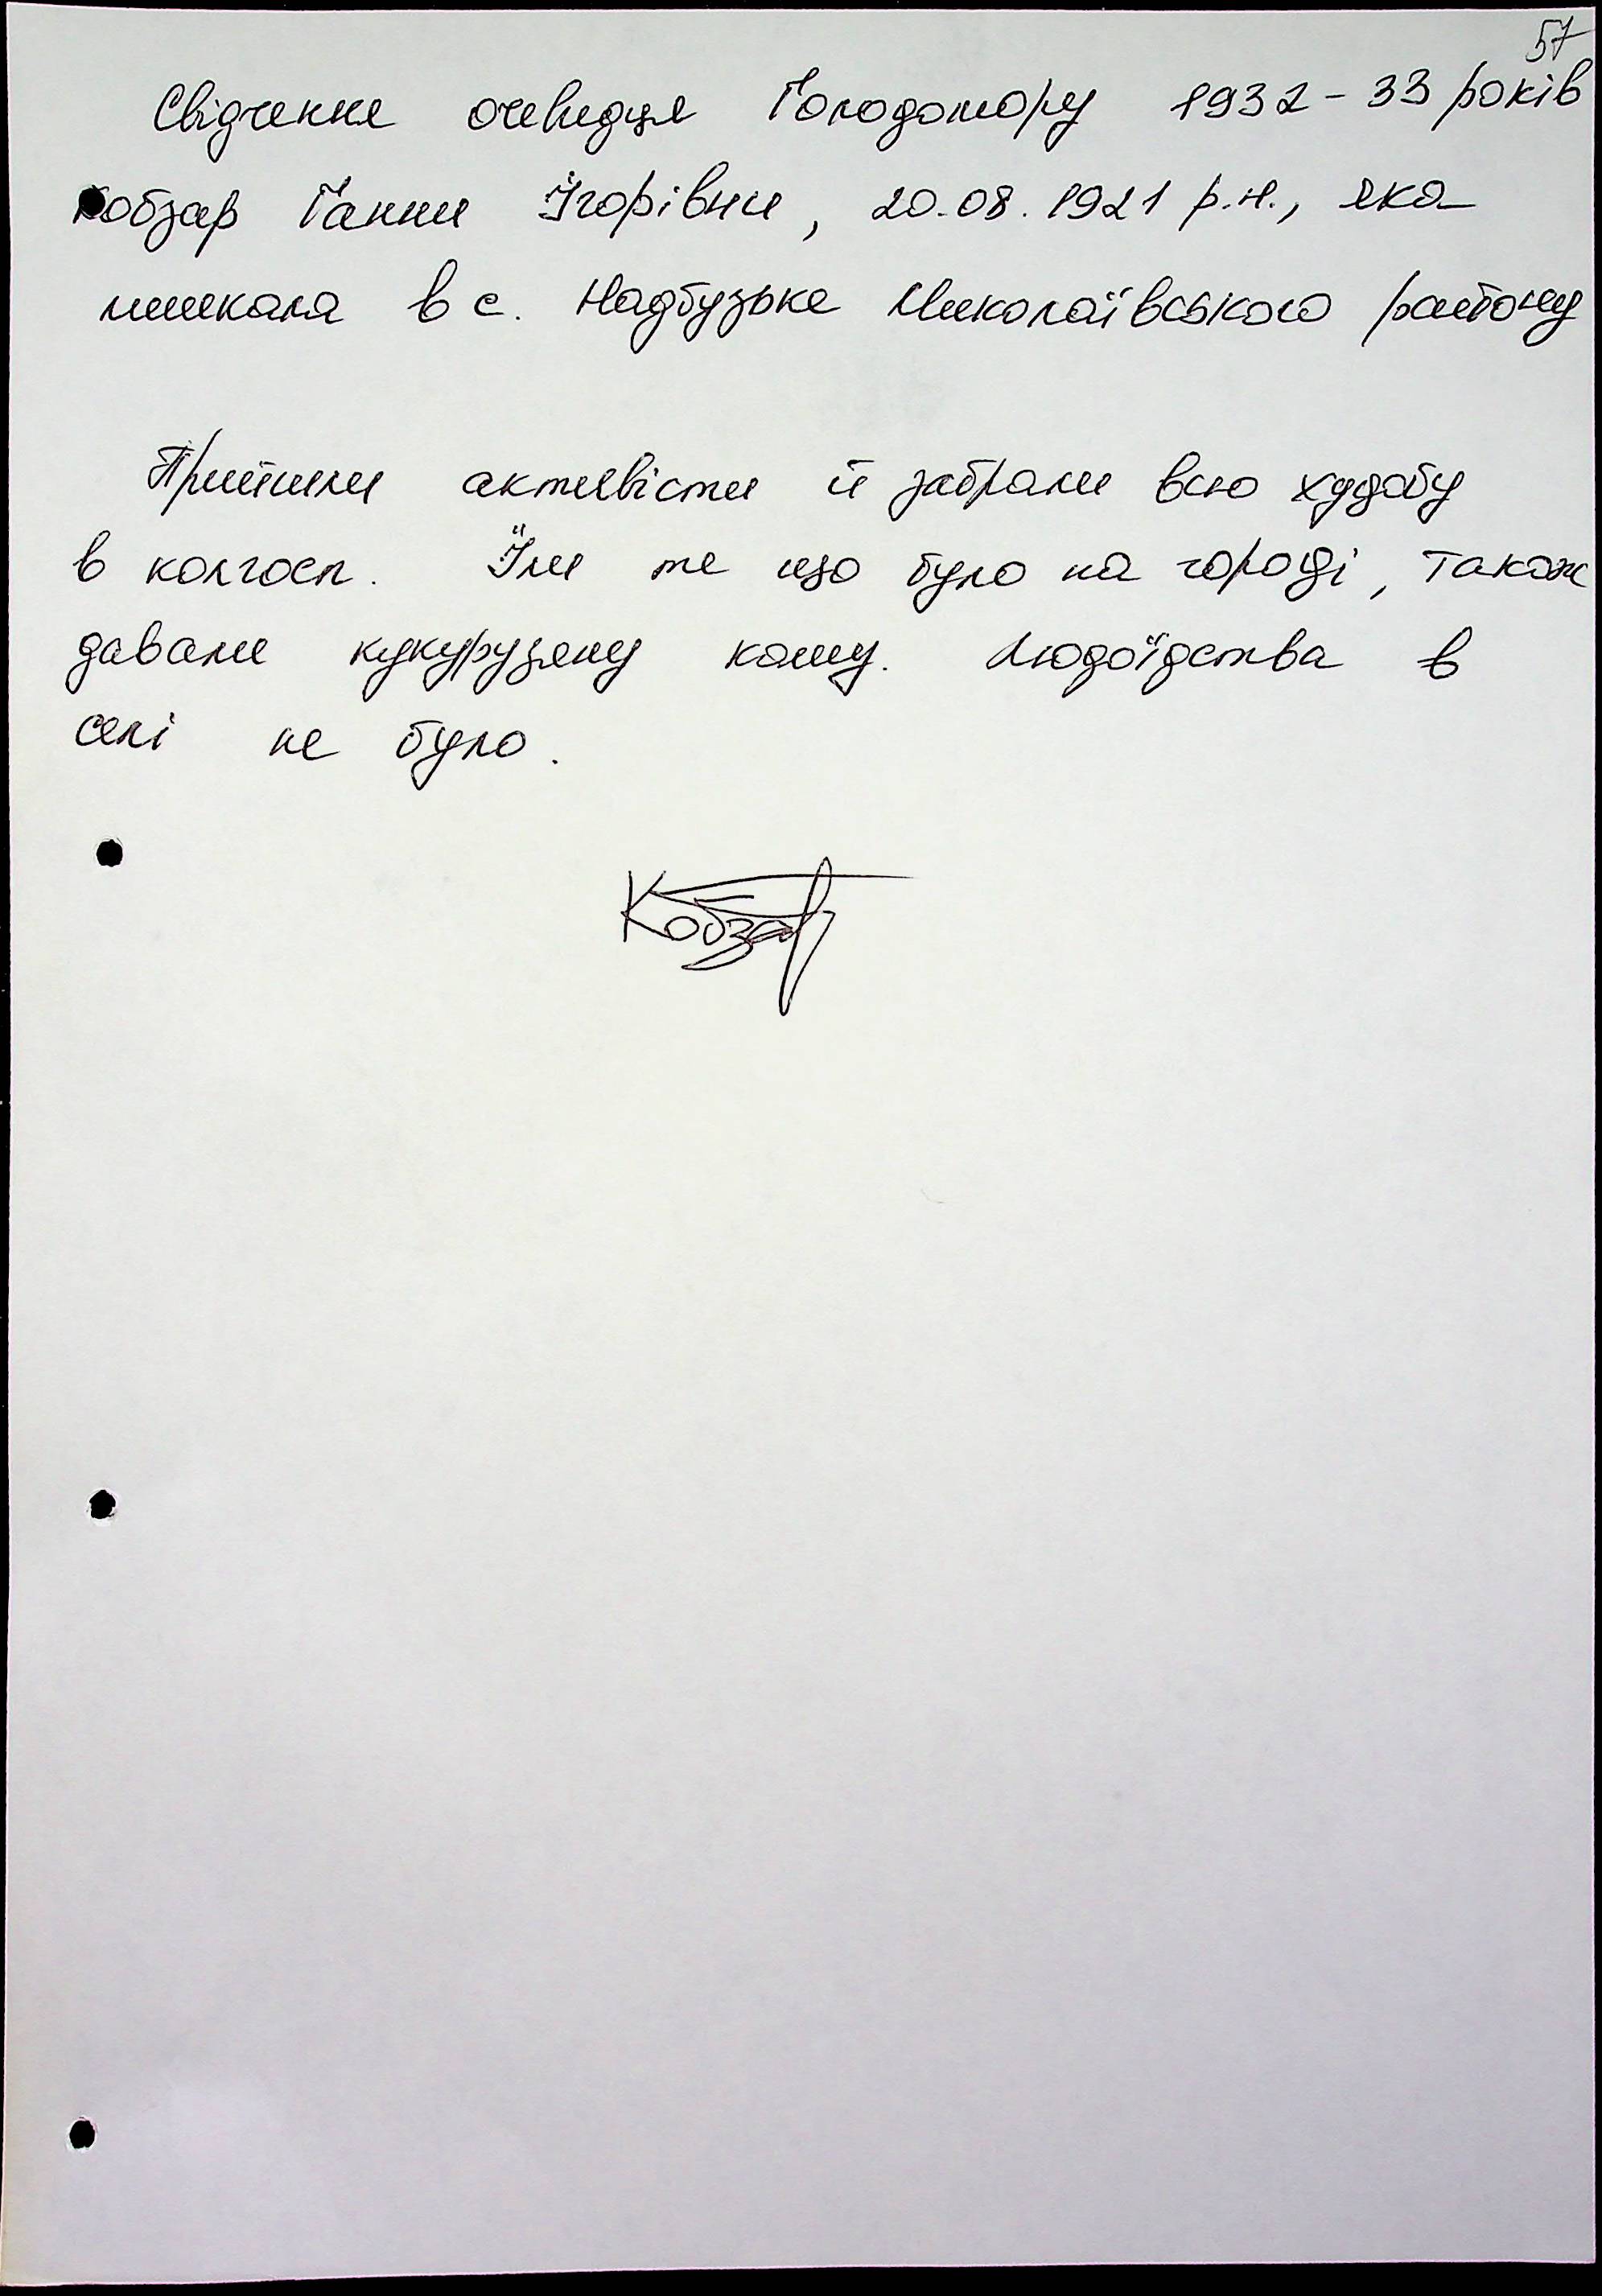 57
Свідчення очевидця Голодомору 1932-33 років
Кобзар Ганни Ігорівни, 20.08.1921 р.н., яка
мешкала в с. Надбузьке Миколаївського району
Прийшли активісти й забрали всю худобу
в колгосп. Їли те що було на городі, також
давали кукурузяну кашу. Людоїдства в
селі не було.
Кобзар